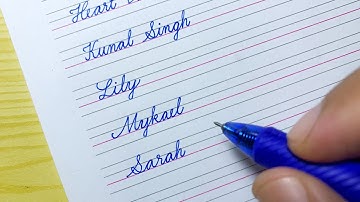 Heart
Kunal Singh
Lily
Mykael
Sarah